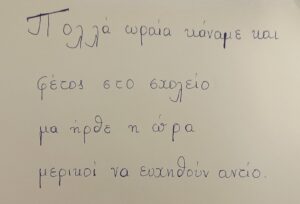 Πολλά ωραία κάναμε και
φέτος στο σχολείο
μα ήρθε η ώρα
μερικοί να ευχηθούν αντίο.